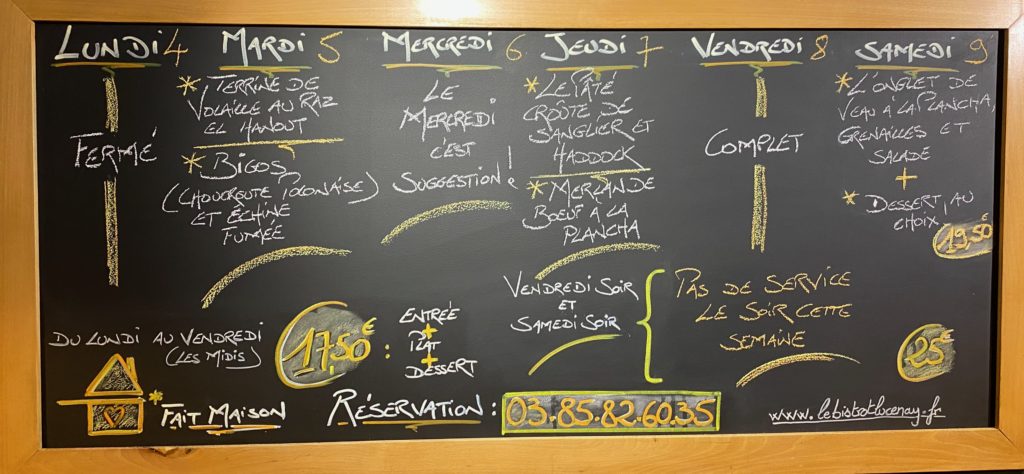 LUNDI 4
FERMÉ
MARDI 5
* TERRINE DE
VOLAILLE AU RAZ
EL HANOUT
* BIGOS
(CHOUCROUTE POLONAISE)
ET ÉCHINE
FUMÉE
MERCREDI 6
LE
MERCREDI
C'EST
SUGGESTION!
JEUDI 7
* LE PÂTÉ
CROÛTE DE
SANGLIER ET
HADDOCK
* MERLAN DE
BOEUF À LA
PLANCHA
VENDREDI 8
COMPLET
SAMEDI 9
* L'ONGLET DE
VEAU À LA PLANCHA,
GRENAILLES ET
SALADE
+
* DESSERT, AU
CHOIX
19,50€
DU LUNDI AU VENDREDI
(LES MIDIS)
17,50€ :
ENTRÉE
+
PLAT
+
DESSERT
VENDREDI SOIR
ET
SAMEDI SOIR
PAS DE SERVICE
LE SOIR CETTE
SEMAINE
25€
* FAIT MAISON
RÉSERVATION : 03.85.82.60.35
www.lebistrotlucenay.fr